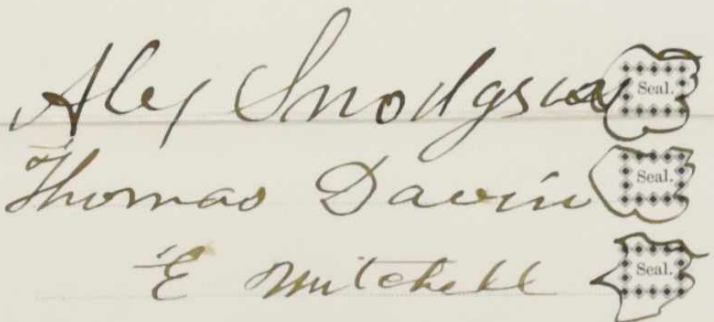 Alex Snodgrass Seal.
Thomas Davin Seal.
E Mitchell Seal.